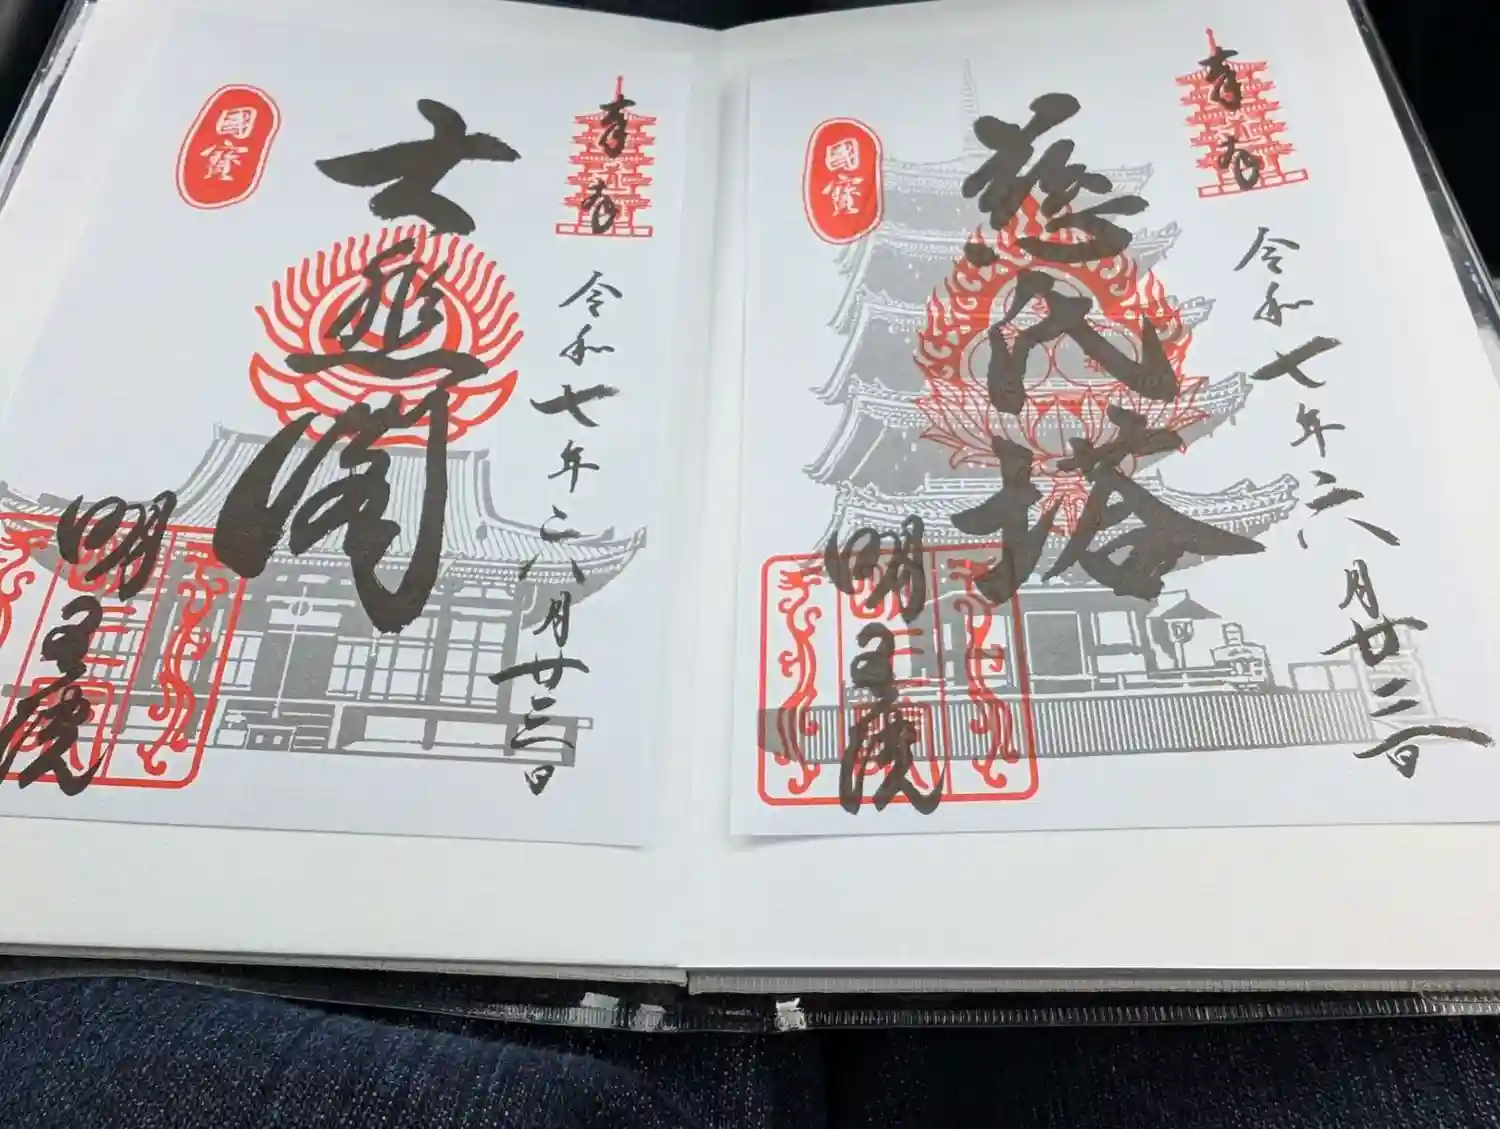 奉拝
令和七年六月廿三日
慈氏塔
國寶
明王院
奉拝
令和七年六月廿三日
大悲閣
國寶
明王院